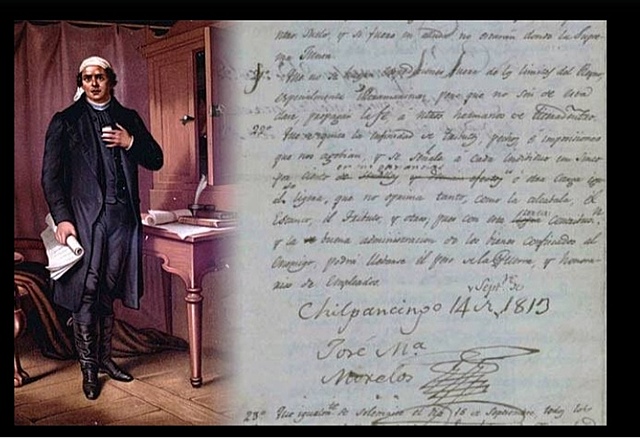 nuestro Suelo, y si fuere en ayuda no estarán donde la Supre-
ma Junta.
Que no se hagan expediciones fuera de los limites del Reyno,
especialmente Ultramarinas, pero que no son de esta
clase, propagar la fe a ntros hermanos de tierradentro.
22º. Que se quite la infinidad de tributos, pechos é imposiciones
que nos agobian, y se señale a cada individuo un cinco
por ciento ó otra carga
ligera, que no oprima tanto, como la alcabala, el
Estanco, el Tributo, y otros, pues con esta ligera contribuc.n
y la buena administracion de los bienes confiscados al
Enemigo, podrá llevarse el peso de la Guerra, y honora-
rios de Empleados.
Chilpancingo 14 de Sept.re de 1813
José M.a
Morelos
23º. Que igualm.te se solemnice el dia 16 de Septiembre, todos los